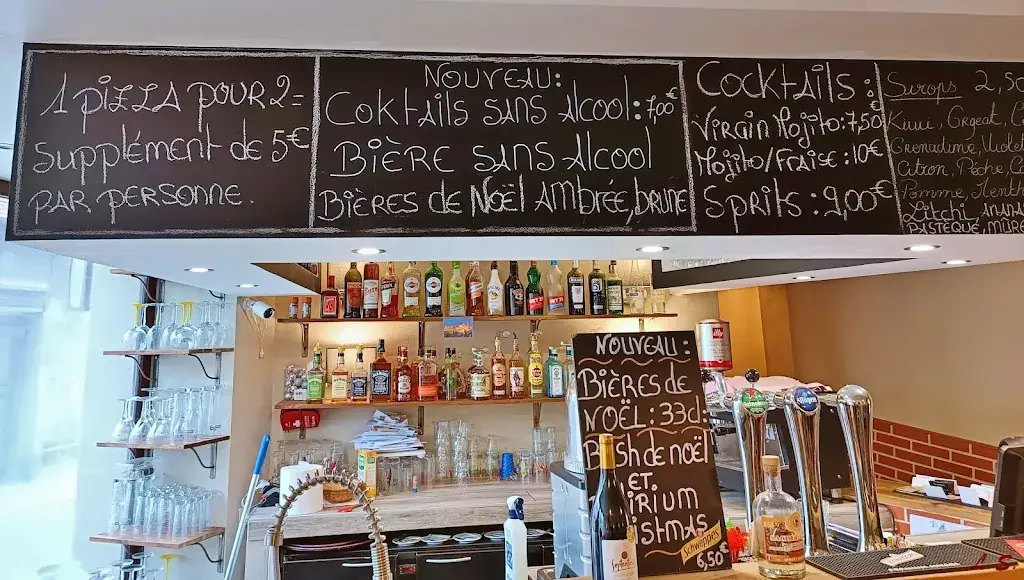 1 PIZZA POUR 2 =
supplément de 5€
PAR PERSONNE.
NOUVEAU:
Coktails SANS Alcool: 7,00€
BIÈRE SANS Alcool
BIÈRES DE Noël AMbRÉE, bRUNE
COCKTAILS :
VIRGIN Mojito: 7,50€
Mojito/FRAISE: 10€
Sprits: 9,00€
Sirops 2,50
Kiwi, Orgeat,
Grenadine, Violet
Citron, Pêche,
Pomme, Menth
Litchi, ANANA
PASTÈQUE, MÛRE
illy
NOUVEAU:
Bières de
NOËL: 33cl:
Bush de noël
ET.
IRIUM
ISTMAS
Schweppes
6,50€